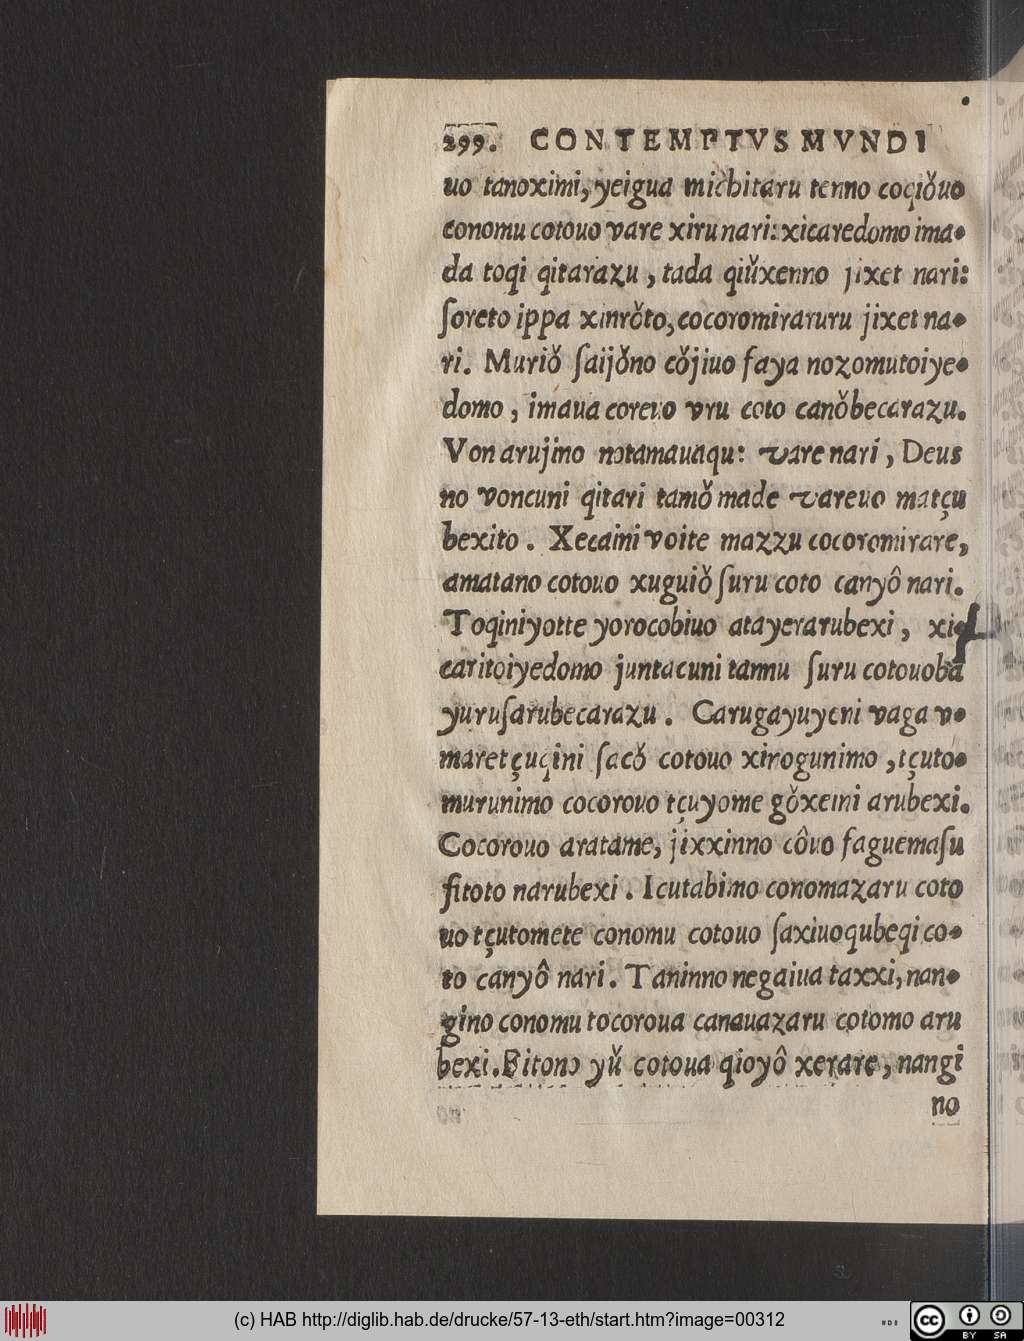 299. CONTEMPTVS MVNDI
uo tanoximi, yeigua michitaru tenno coqiǒuo
conomu cotouo vare xiru nari: xicaredomo ima-
da toqi qitarazu, tada qiǔxenno jixet nari:
ſoreto ippa xinrǒto, cocoromiraruru jixet na-
ri. Muriǒ ſaijǒno cǒjiuo faya nozomutoiye-
domo, imaua coreuo vru coto canǒbecarazu.
Von arujino notamauaqu: vare nari, Deus
no voncuni qitari tamǒ made vareuo matçu
bexito. Xecaini voite mazzu cocoromirare,
amatano cotouo xuguiǒ ſuru coto canyô nari.
Toqiniyotte yorocobiuo atayerarubexi, xi-
caritoiyedomo juntacuni tannu ſuru cotouoba
yuruſarubecarazu. Carugayuyeni vaga v-
maretçuqini ſacǒ cotouo xirogunimo, tçuto-
murunimo cocorouo tçuyome gǒxeini arubexi.
Cocorouo aratame, jixxinno côuo faguemaſu
fitoto narubexi. Icutabimo conomazaru coto
uo tçutomete conomu cotouo ſaxiuoqubeqi co-
to canyô nari. Taninno negaiua taxxi, nan-
gino conomu tocoroua canauazaru cotomo aru
bexi. Fitono yǔ cotoua qioyô xerare, nangi
no
(c) HAB http://diglib.hab.de/drucke/57-13-eth/start.htm?image=00312
cc
BY SA